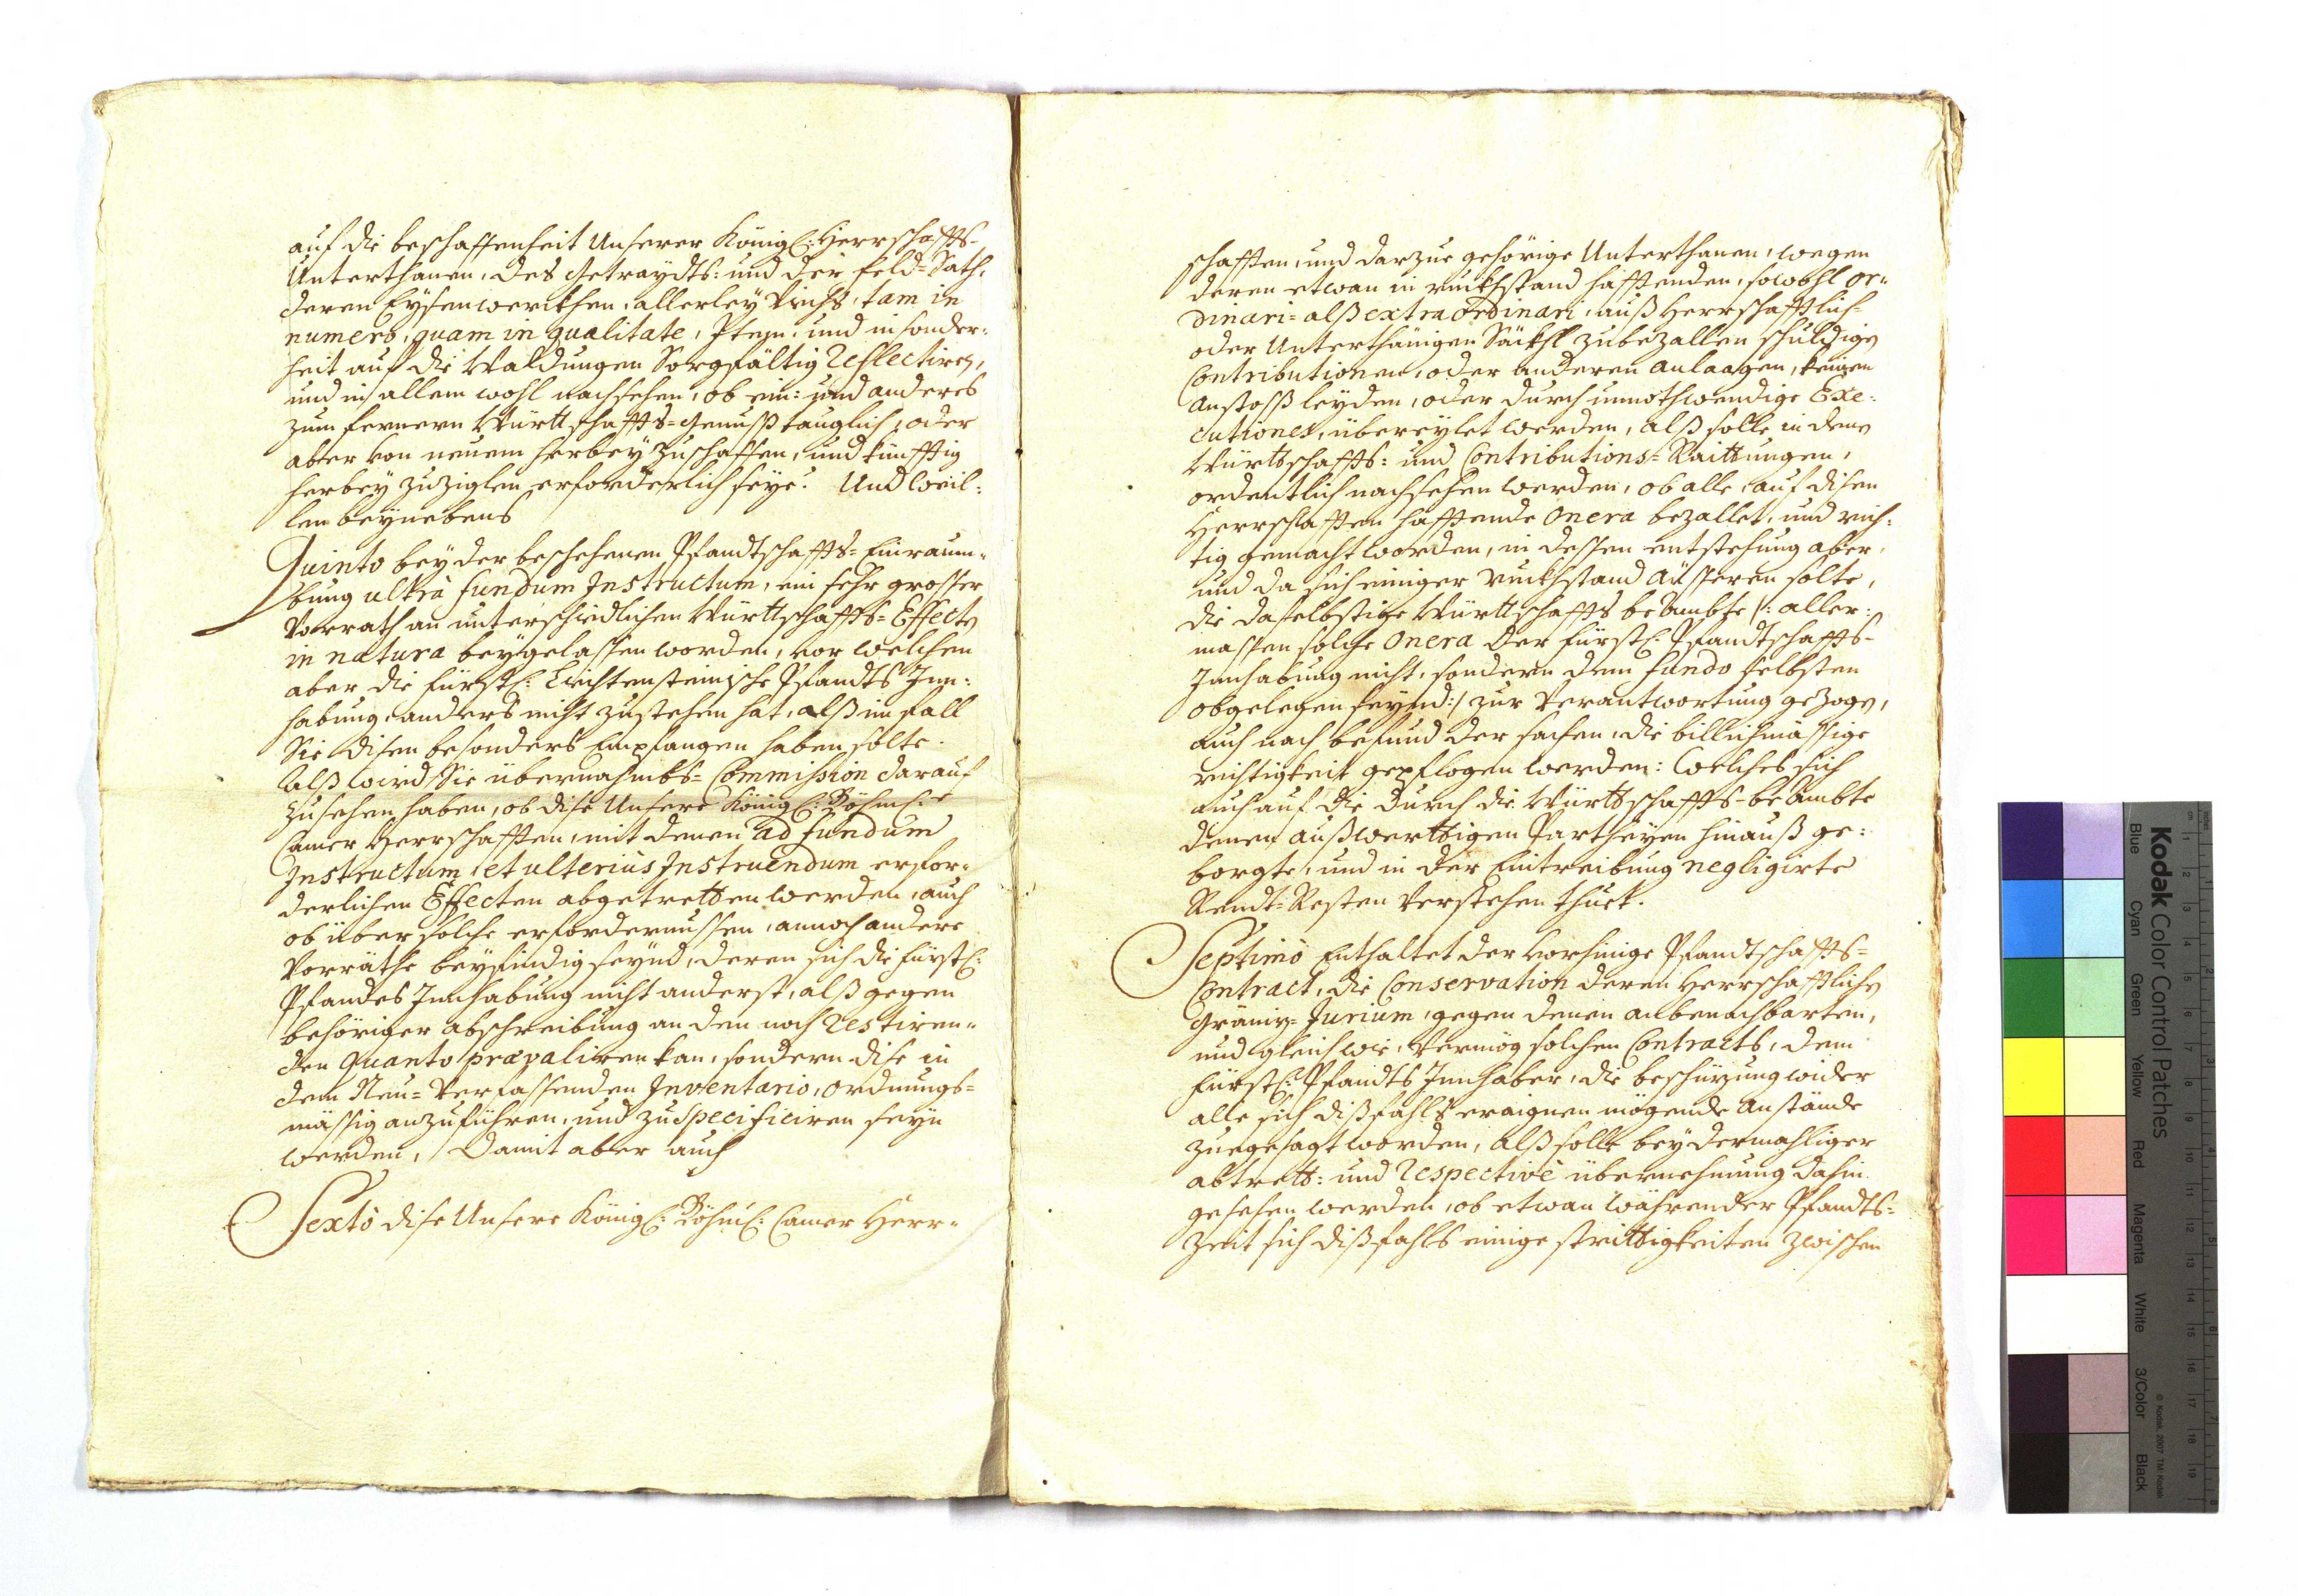 auf die beschaffenheit Unserer Königl: Herrschaffts-
Unterthanen, des Getraydts: und der Feld-Sath,
deren Eysenwerckhen, allerley Viechs, tam in
numero, quam in qualitate, Item: und in sonder-
heit auf die Waldungen Sorgfältig Reflectiren,
und in allem wohl nachsehen, ob ein: und anderes
zum fernern Württschaffts-Genuß tauglich, oder
aber von neuem herbey zuschaffen, und künfftig
herbey zuziglen erforderlich seye. Und weil-
len beynebens
Quinto bey der beschehenen Pfandtschaffts-Einraum-
bung ultrà fundum Instructum, ein sehr grosser
Vorrath an unterschiedlichen Württschaffts-Effecten
in natura beygelassen worden, vor welchen
aber die fürstl: Liechtensteinische Pfandts Inn-
habung, anders nicht zustehen hat, alß im fall
Sie disen besonders Empfangen haben solte.
Alß wird Sie übernahmbs-Commission darauf
zusehen haben, ob dise Unsere Königl: Böhml:e
Camer Herrschafften, mit denen ad fundum
Instructum, et ulterius Instruendum erfor-
derlichen Effecten abgetretten werden, auch
ob über solche erfordernussen, annoch andere
Vorräthe beyfindig seynd, deren sich die fürstl:
Pfandes Innhabung nicht anderst, alß gegen
behöriger abschreibung an den noch restiren-
den Quanto prævaliren kan, sondern dise in
dem Neu-Verfassenden Inventario, ordnungs-
mässig anzuführen, und zu Specificiren seyn
werden, Damit aber auch
Sexto dise Unsere Königl: Böhml: Camer Herr-
schafften, und darzue gehörige Unterthanen, wegen
deren etwan in ruckhstand hafftenden, sowohl or-
dinari- alß extraordinari, auß Herrschafftlich-
oder Unterthänigen Säckhl zubezallen schuldigen
Contributionen, oder anderen anlaagen, keinen
Anstoß leyden, oder durch unnothwendige Exe-
cutiones, übereylet werden, alß solle in denen
Württschaffts: und Contributions-Raittungen,
ordentlich nachsehen werden, ob alle auf disen
Herrschafften hafftende Onera bezallet, und rich-
tig gemacht worden, in dessen entstehung aber,
und da sich einiger ruckhstand äusseren solte,
die daselbstige Württschaffts beambte /: aller-
massen solche Onera der fürstl: Pfandtschaffts-
Innhabung nicht, sondern dem fundo selbsten
obgelegen seynd :/ zur Verantwortung gezogen,
auch nach befund der sachen, die billichmässige
richtigkeit gepflogen werden: Welches sich
auch auf die durch die Württschaffts-beambte
denen außwerttigen Partheyen hinauß ge-
borgte, und in der Eintreibung negligirte
Rendt-Resten verstehen thuet.
Septimò Enthaltet der vorhinige Pfandtschaffts-
Contract, die Conservation deren Herrschafftlichen
Gräniz-Jurium, gegen denen anbenachbarten,
und gleichwie, vermög solchen Contracts, dem
fürstl: Pfandts Innhaber, die beschüzung wider
alle sich dißfahls eraignen mögende Anstände
zuegesagt worden, Alß solle bey dermahliger
abtrett: und respectivè übernehmung dahin
gesehen werden, ob etwan währender Pfandts-
zeit sich dißfahls einige strittigkeiten zwischen
Kodak Color Control Patches
Blue Cyan Green Yellow Red Magenta White 3/Color Black
© Kodak, 2007 TM: Kodak